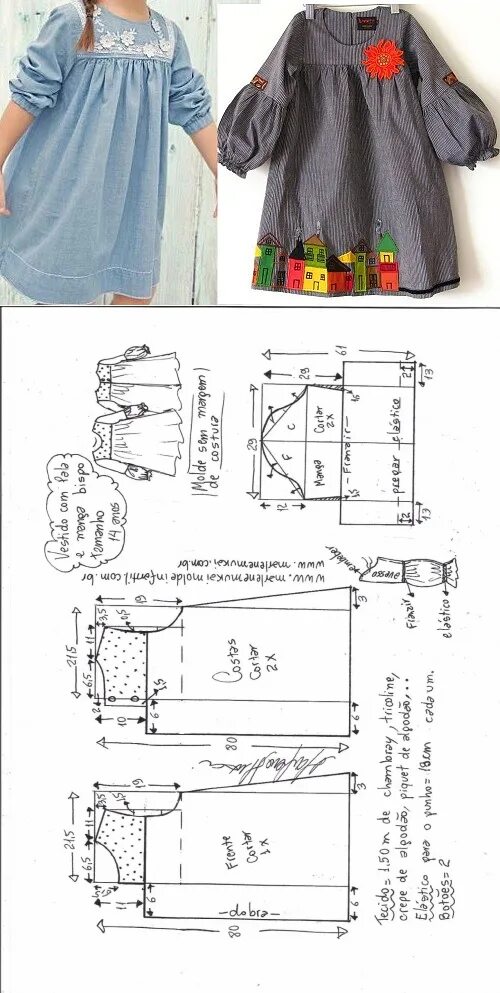 Vestido com Pala
e manga bispo
tamanho
14 anos
Molde sem margem
de costura
61
29
13
2
29
12
C
F
Manga
Cortar
2x
- Franzir -
1,5
1,5
- pregar elástico -
2
13
www.marlenemukaimoldeinfantil.com.br
www.marlenemukai.com.br
avesso
Franzir
elástico
21,5
11
6,5
2
3,5
19
1,5
10
6
80
3
6
Costas
Cortar
2x
21,5
11
6,5
3,5
19
11
6
80
3
6
Frente
Cortar
1x
- dobra -
Tecido = 1,50m de chambray, tricoline,
crepe de algodão, piquet de algodão,...
Elástico para o punho = 18cm cada um.
Botões = 2